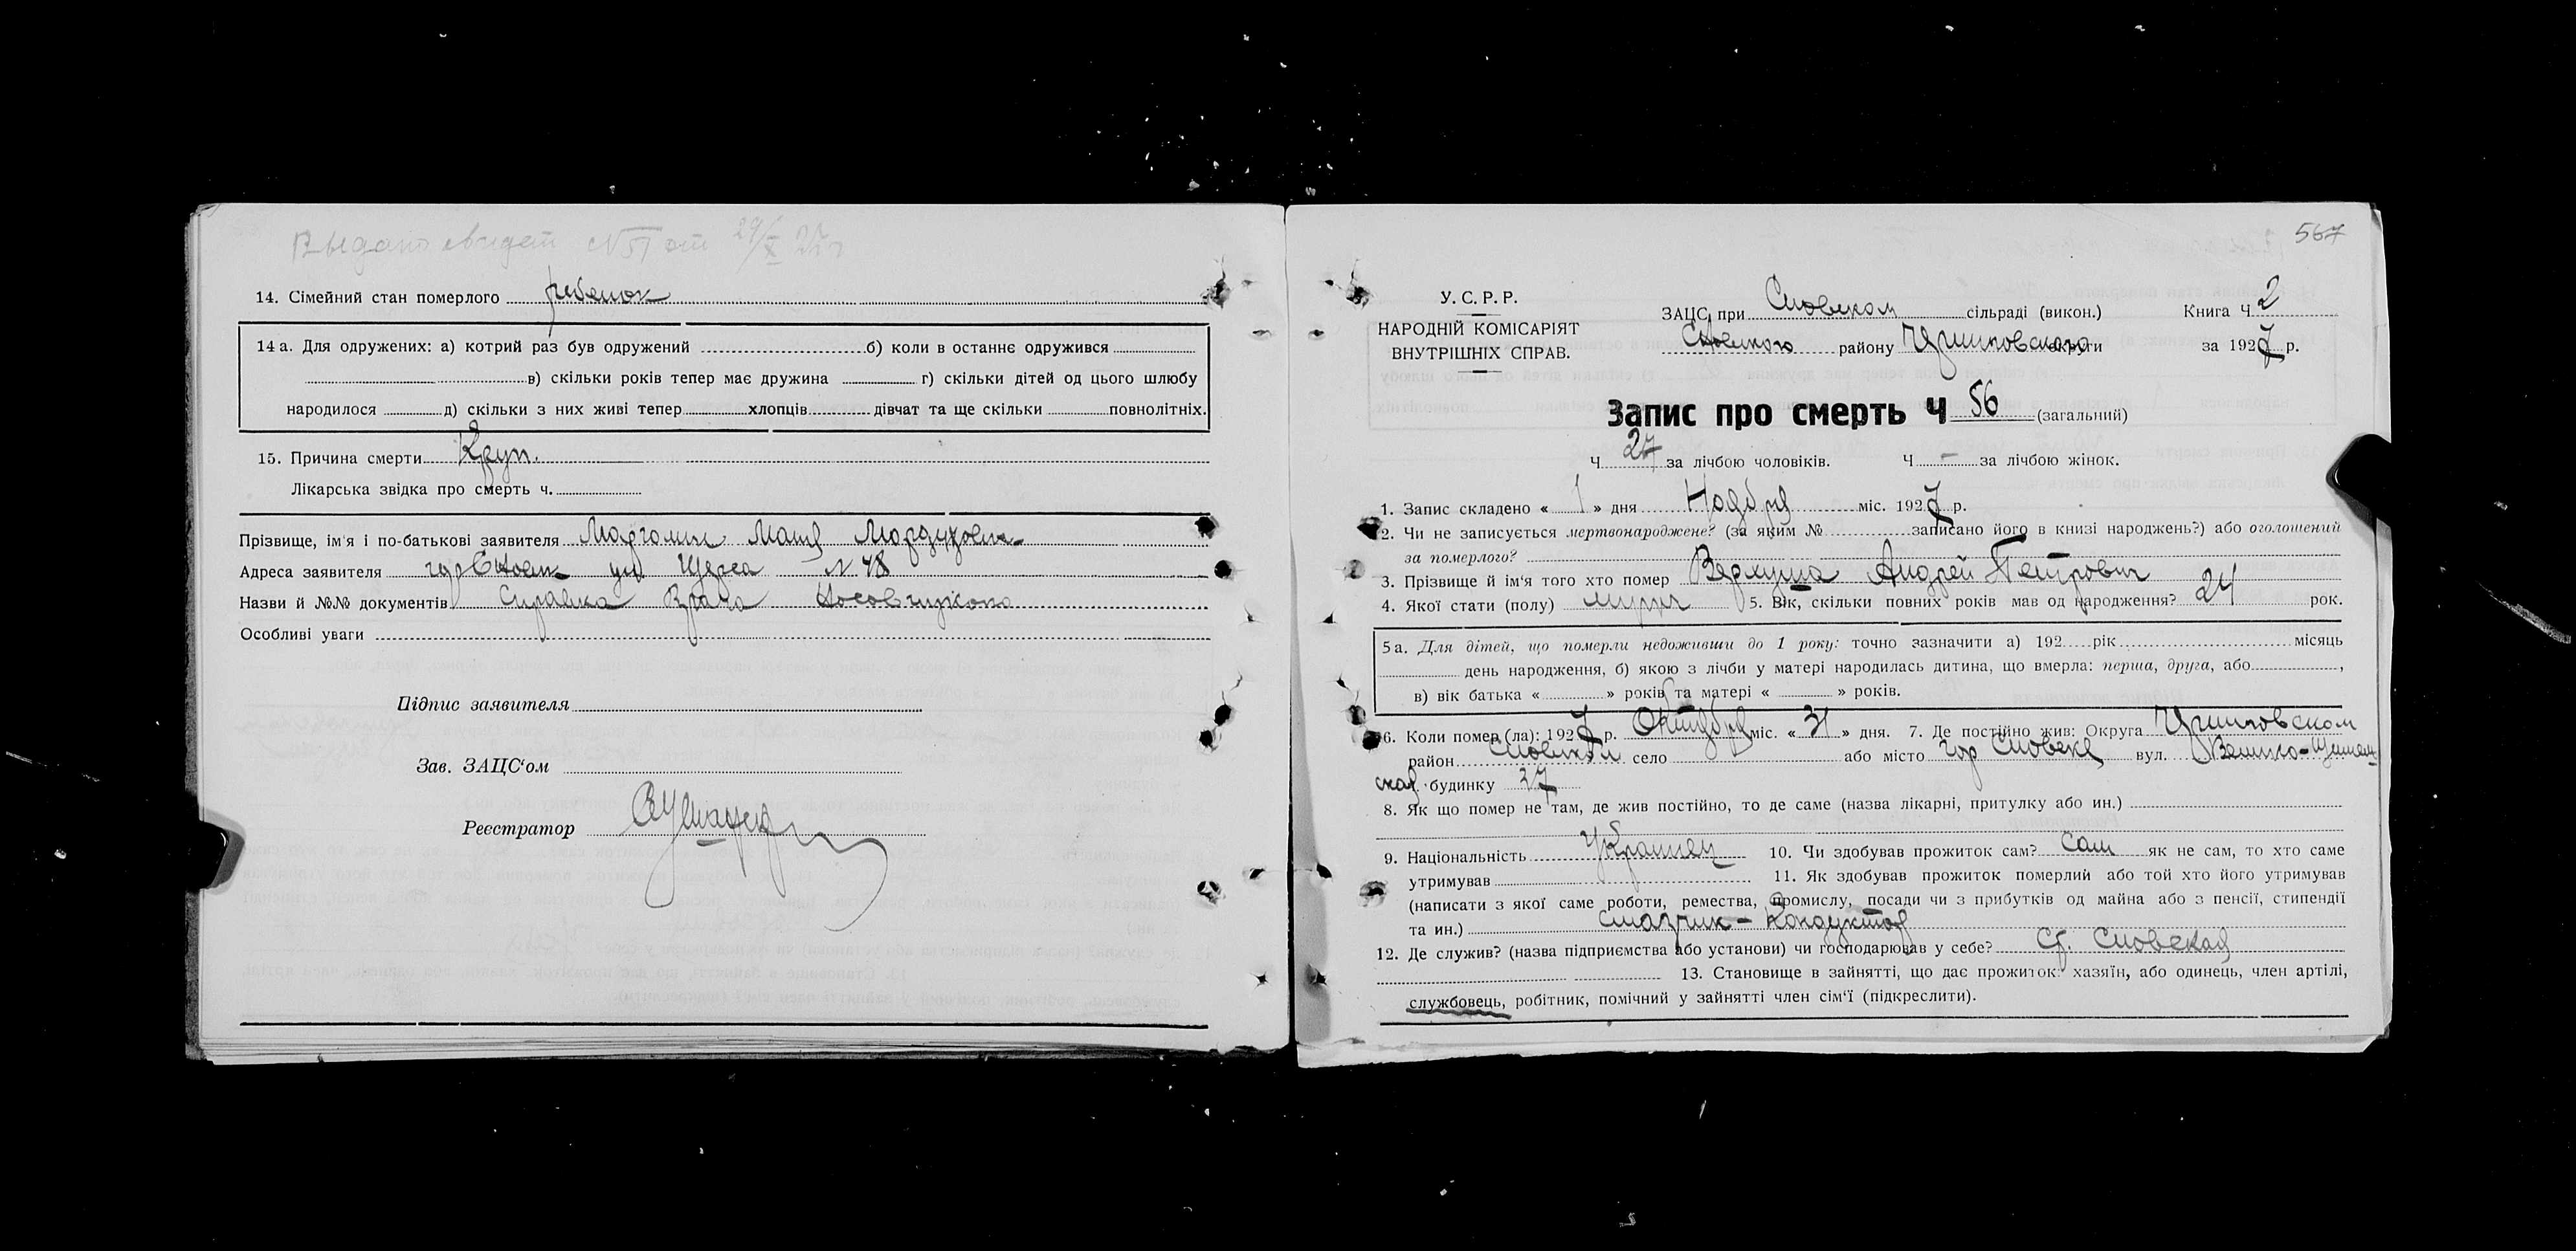 Выдано свидет. №51 от 29/X 27 г
14. Сімейний стан померлого ребенок
14 а. Для одружених: а) котрий раз був одружений б) коли в останнє одружився
в) скільки років тепер має дружина г) скільки дітей од цього шлюбу
народилося д) скільки з них живі тепер хлопців дівчат та ще скільки повнолітніх.
15. Причина смерти Круп.
Лікарська звідка про смерть ч.
Прізвище, ім'я і по-батькові заявителя Марголин Мордухович
Адреса заявителя гор Сновск ул. Щорса № 48
Назви й №№ документів Справка Врача
Особливі уваги
Підпис заявителя
Зав. ЗАЦС'ом
Реєстратор
567
У. С. Р. Р.
НАРОДНІЙ КОМІСАРІЯТ
ВНУТРІШНІХ СПРАВ.
ЗАЦС при Сновском сільраді (викон.) Книга Ч 2
Сновского району округи за 1927 р.
Запис про смерть Ч 56 (загальний)
Ч 27 за лічбою чоловіків. Ч - за лічбою жінок.
1. Запис складено « 1 » дня Ноября міс. 1927 р.
2. Чи не записується мертвонароджене? (за яким № записано його в книзі народжень?) або оголошений
за померлого?
3. Прізвище й ім'я того хто помер Вермуша Андрей Петрович
4. Якої стати (полу) мужч 5. Вік, скільки повних років мав од народження? 24 рок.
5 а. Для дітей, що померли недоживши до 1 року: точно зазначити а) 192 рік місяць
день народження, б) якою з лічби у матері народилась дитина, що вмерла: перша, друга, або ,
в) вік батька « » років та матері « » років.
6. Коли помер (ла): 1927 р. Октября міс. « 31 » дня. 7. Де постійно жив: Округа
район Сновский село або місто гор Сновске вул.
ская будинку 37
8. Як що помер не там, де жив постійно, то де саме (назва лікарні, притулку або ин.)
9. Національність Украинец 10. Чи здобував прожиток сам? Сам як не сам, то хто саме
утримував 11. Як здобував прожиток померлий або той хто його утримував
(написати з якої саме роботи, ремества, промислу, посади чи з прибутків од майна або з пенсії, стипендії
та ин.) смазчик - Кондуктор
12. Де служив? (назва підприємства або установи) чи господарював у себе? Ст. Сновская
13. Становище в зайнятті, що дає прожиток: хазяїн, або одинець, член артілі,
службовець, робітник, помічний у зайнятті член сім'ї (підкреслити).